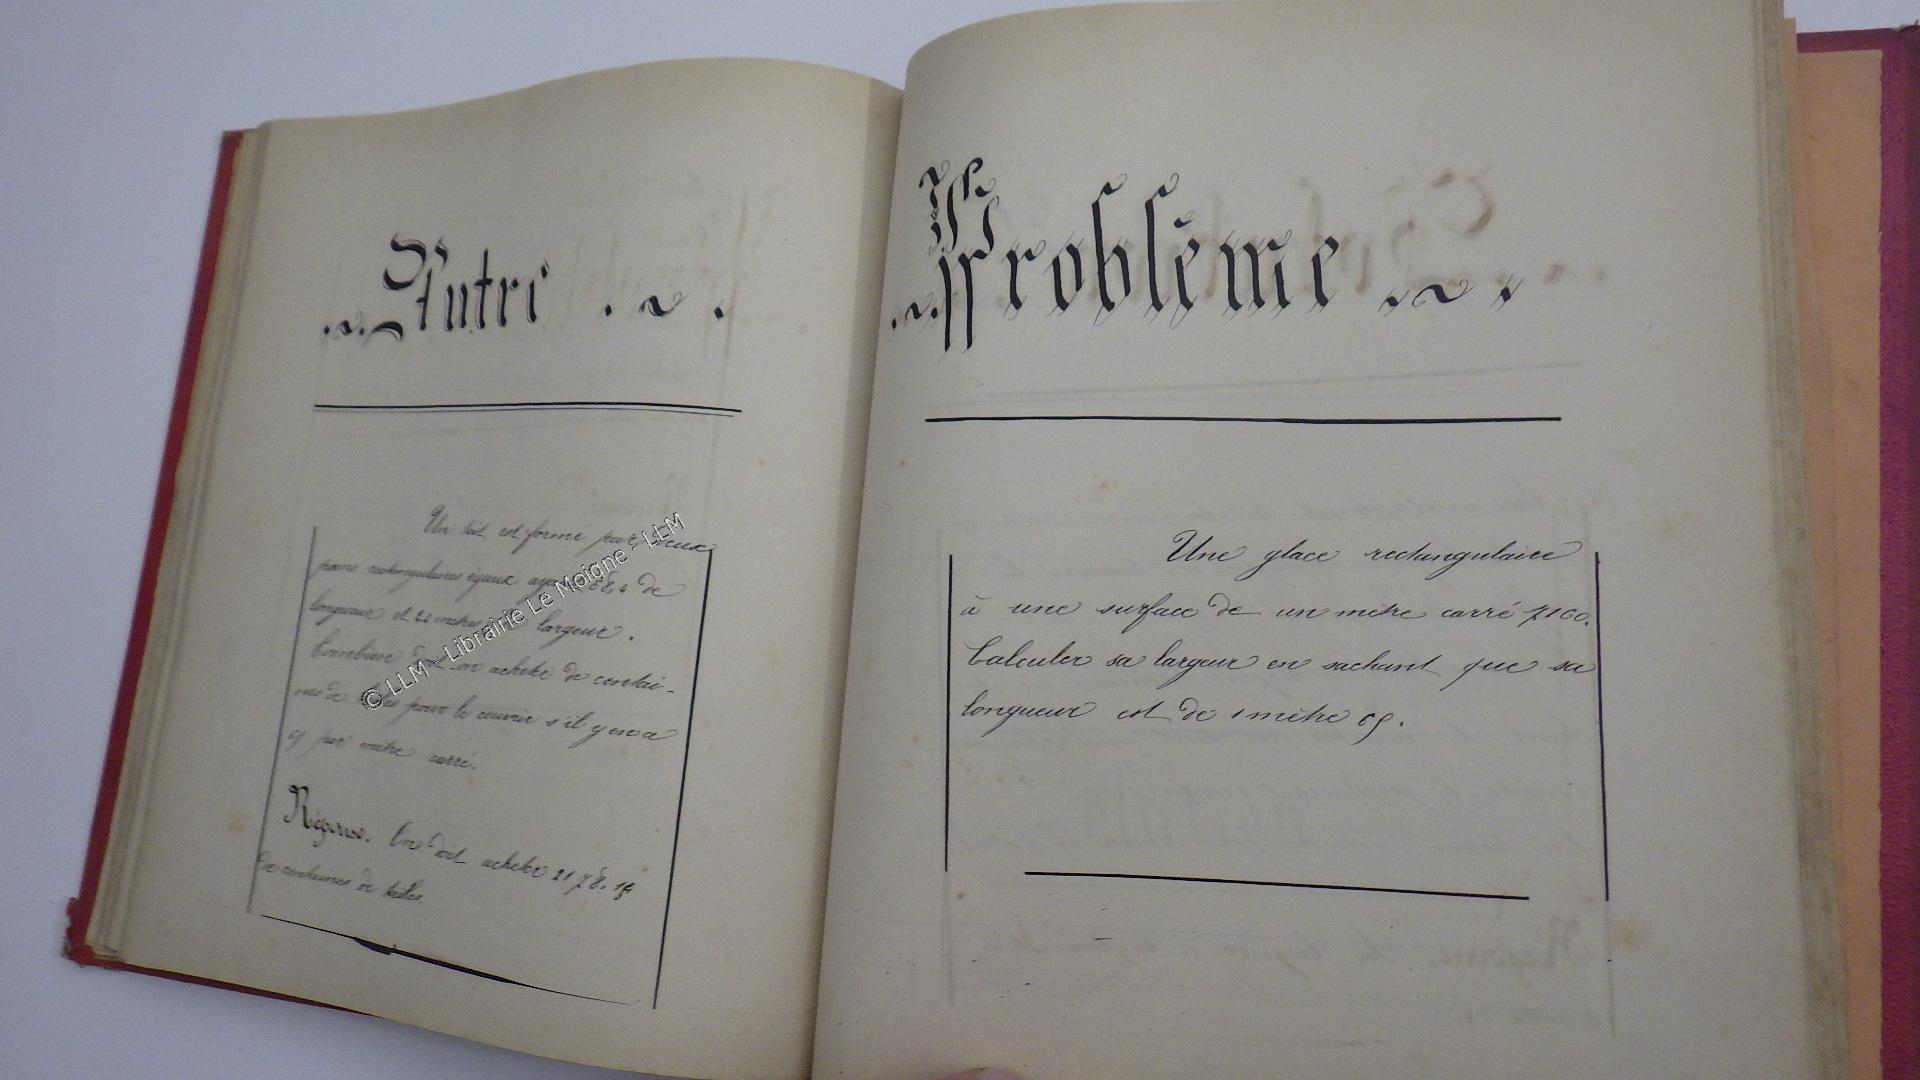 Autre
Un toit est formé par deux
pans rectangulaires égaux 68,4 de
longueur et 21 mètres largeur.
Combien doit on acheter de centai-
nes de tuiles pour le couvrir s'il y en a
par mètre carré.
Réponse. On doit acheter
de centaines de tuiles.
© LLM - Librairie Le Moigne - LLM
Problème
Une glace rectangulaire
à une surface de un mètre carré 7160.
Calculer sa largeur en sachant que sa
longueur est de 1 mètre